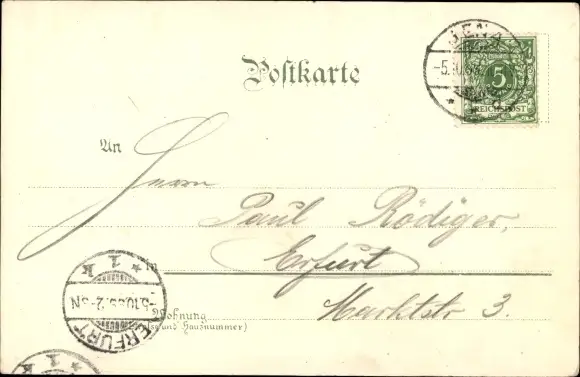 JENA
-5.10.
5
REICHSPOST
Postkarte
An
Herrn
Paul Rödiger,
Erfurt
Marktstr 3.
Wohnung
und Hausnummer)
ERFURT
* 1 k
-5.10. 2-3N
* 1 k